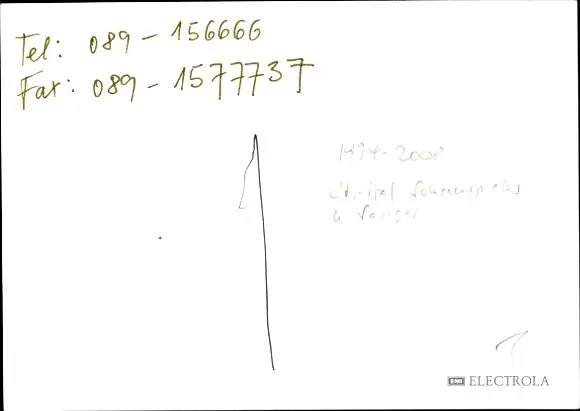 Tel: 089 - 156666
Fax: 089 - 1577737
dt.-ital Schauspieler
u Sänger
EMI ELECTROLA